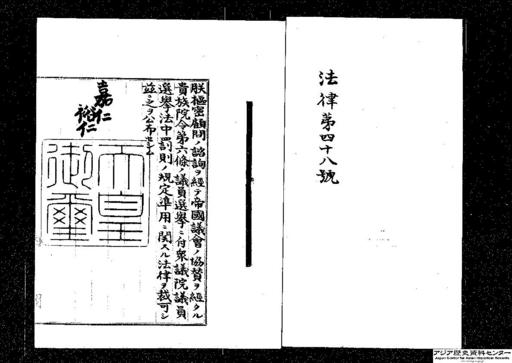 法律第四十八號
朕樞密顧問ノ諮詢ヲ經テ帝國議會ノ協賛ヲ經タル
貴族院令第六條ノ議員選擧ニ付衆議院議員
選擧法中罰則ノ規定準用ニ關スル法律ヲ裁可シ
茲ニ之ヲ公布セシム
嘉仁
裕仁
天皇
御璽
アジア歴史資料センター
Japan Center for Asian Historical Records